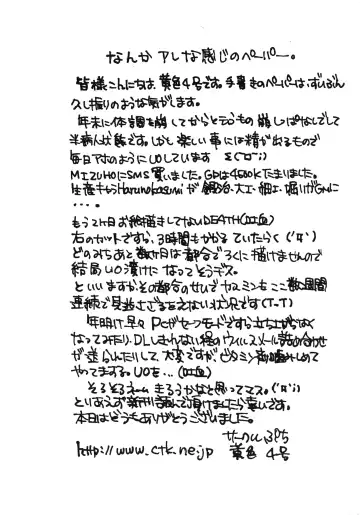 なんか アレな感じのペーパー。
皆様こんにちは 黄色4号です。手書きのペーパーは、ずいぶん
久し振りのような気がします。
年末に体調を崩してからと言うもの 崩しっぱなしでして
半病人状態です。しかし楽しい事には精が出るもので
毎日アホのようにUOしています
MIZUHOにSMS買いました。GMは4500Kに売りました。
生産キャラHarunokasumiが鍛冶、大工、細工、掘りがGMに
・・・・。
もう2ヶ月お絵描きしてないDEATH(吐血)
右のカットですら、3時間もかかる ていたらく
どのみちあと数ヶ月は都合でろくに描けませんので
結局UO漬けに なってそうデス。
といいますか、その都合のせいで ヤスミンもここ数週間
連続で見逃さざるをえない状況です(T_T)
年明け早々 PCがセーフモードですら立ち上がらなく
なってみたり、DLしきれない程のウィルスメール詰め合わせ
が送られたりして、大変ですが、ビタミン剤噛みしめて
やってます。UOを…(吐血)
そろそろネーム きろうかなと思ってマス。
とりあえず新刊 読んで頂けましたら幸いです。
本日はどうもありがとうございました。
http://www.ctk.ne.jp 黄色 4号